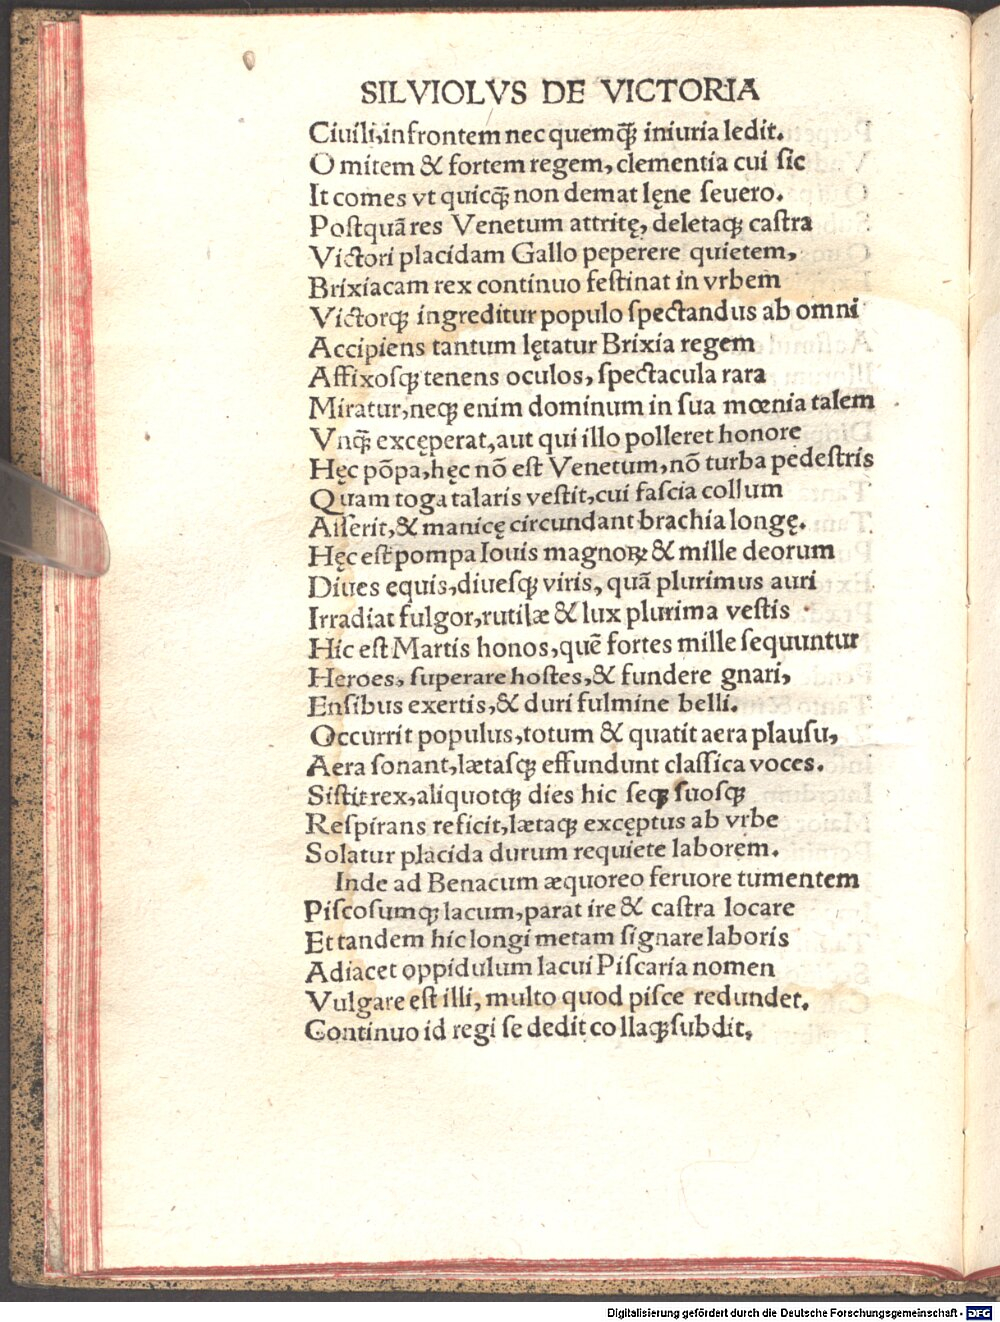 SILVIOLVS DE VICTORIA
Ciuili,in frontem nec quemq̃ iniuria ledit.
O mitem & fortem regem, clementia cui sic
It comes vt quicq̃ non demat lęne seuero.
Postquã res Venetum attritę, deletaqꝫ castra
Victori placidam Gallo peperere quietem,
Brixiacam rex continuo festinat in vrbem
Victorqꝫ ingreditur populo spectandus ab omni
Accipiens tantum lętatur Brixia regem
Affixosqꝫ tenens oculos, spectacula rara
Miratur,neqꝫ enim dominum in sua mœnia talem
Vnq̃ excęperat,aut qui illo polleret honore
Hęc põpa,hęc nõ est Venetum,nõ turba pedestris
Quam toga talaris vestit,cui fascia collum
Asserit,& manicę circundant brachia longę.
Hęc est pompa Iouis magnoꝝ & mille deorum
Diues equis,diuesqꝫ viris, quã plurimus auri
Irradiat fulgor,rutilæ & lux plurima vestis
Hic est Martis honos,quẽ fortes mille sequuntur
Heroes, superare hostes,& fundere gnari,
Ensibus exertis,& duri fulmine belli.
Occurrit populus,totum & quatit aera plausu,
Aera sonant,lætasqꝫ effundunt classica voces.
Sistit rex,aliquotqꝫ dies hic seqꝫ suosqꝫ
Respirans reficit,lætaqꝫ excęptus ab vrbe
Solatur placida durum requiete laborem.
Inde ad Benacum æquoreo feruore tumentem
Piscosumqꝫ lacum,parat ire & castra locare
Et tandem hic longi metam signare laboris
Adiacet oppidulum lacui Piscaria nomen
Vulgare est illi, multo quod pisce redundet.
Continuo id regi se dedit collaqꝫ subdit,
Digitalisierung gefördert durch die Deutsche Forschungsgemeinschaft - DFG